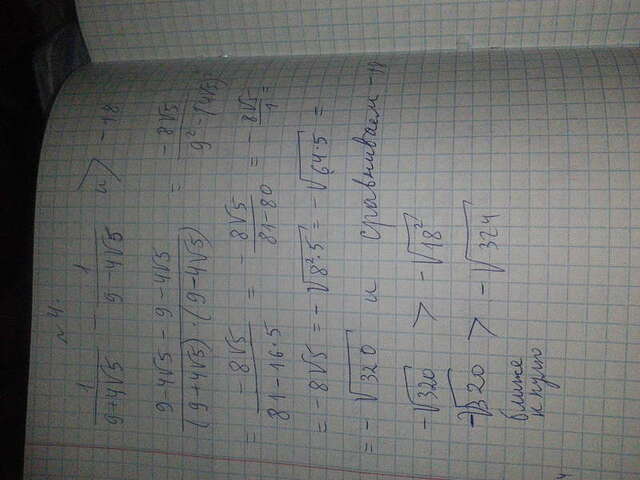 №4.
1/(9+4√5) − 1/(9−4√5) и > −18
(9−4√5−9−4√5)/((9+4√5)·(9−4√5)) = −8√5/(9²−(4√5)²)
= −8√5/(81−16·5) = −8√5/(81−80) = −8√5/1 =
= −8√5 = −√(8²·5) = −√(64·5) =
= −√320 и сравниваем −18
−√320 > −√(18²)
−√320 > −√324
ближе
к нулю